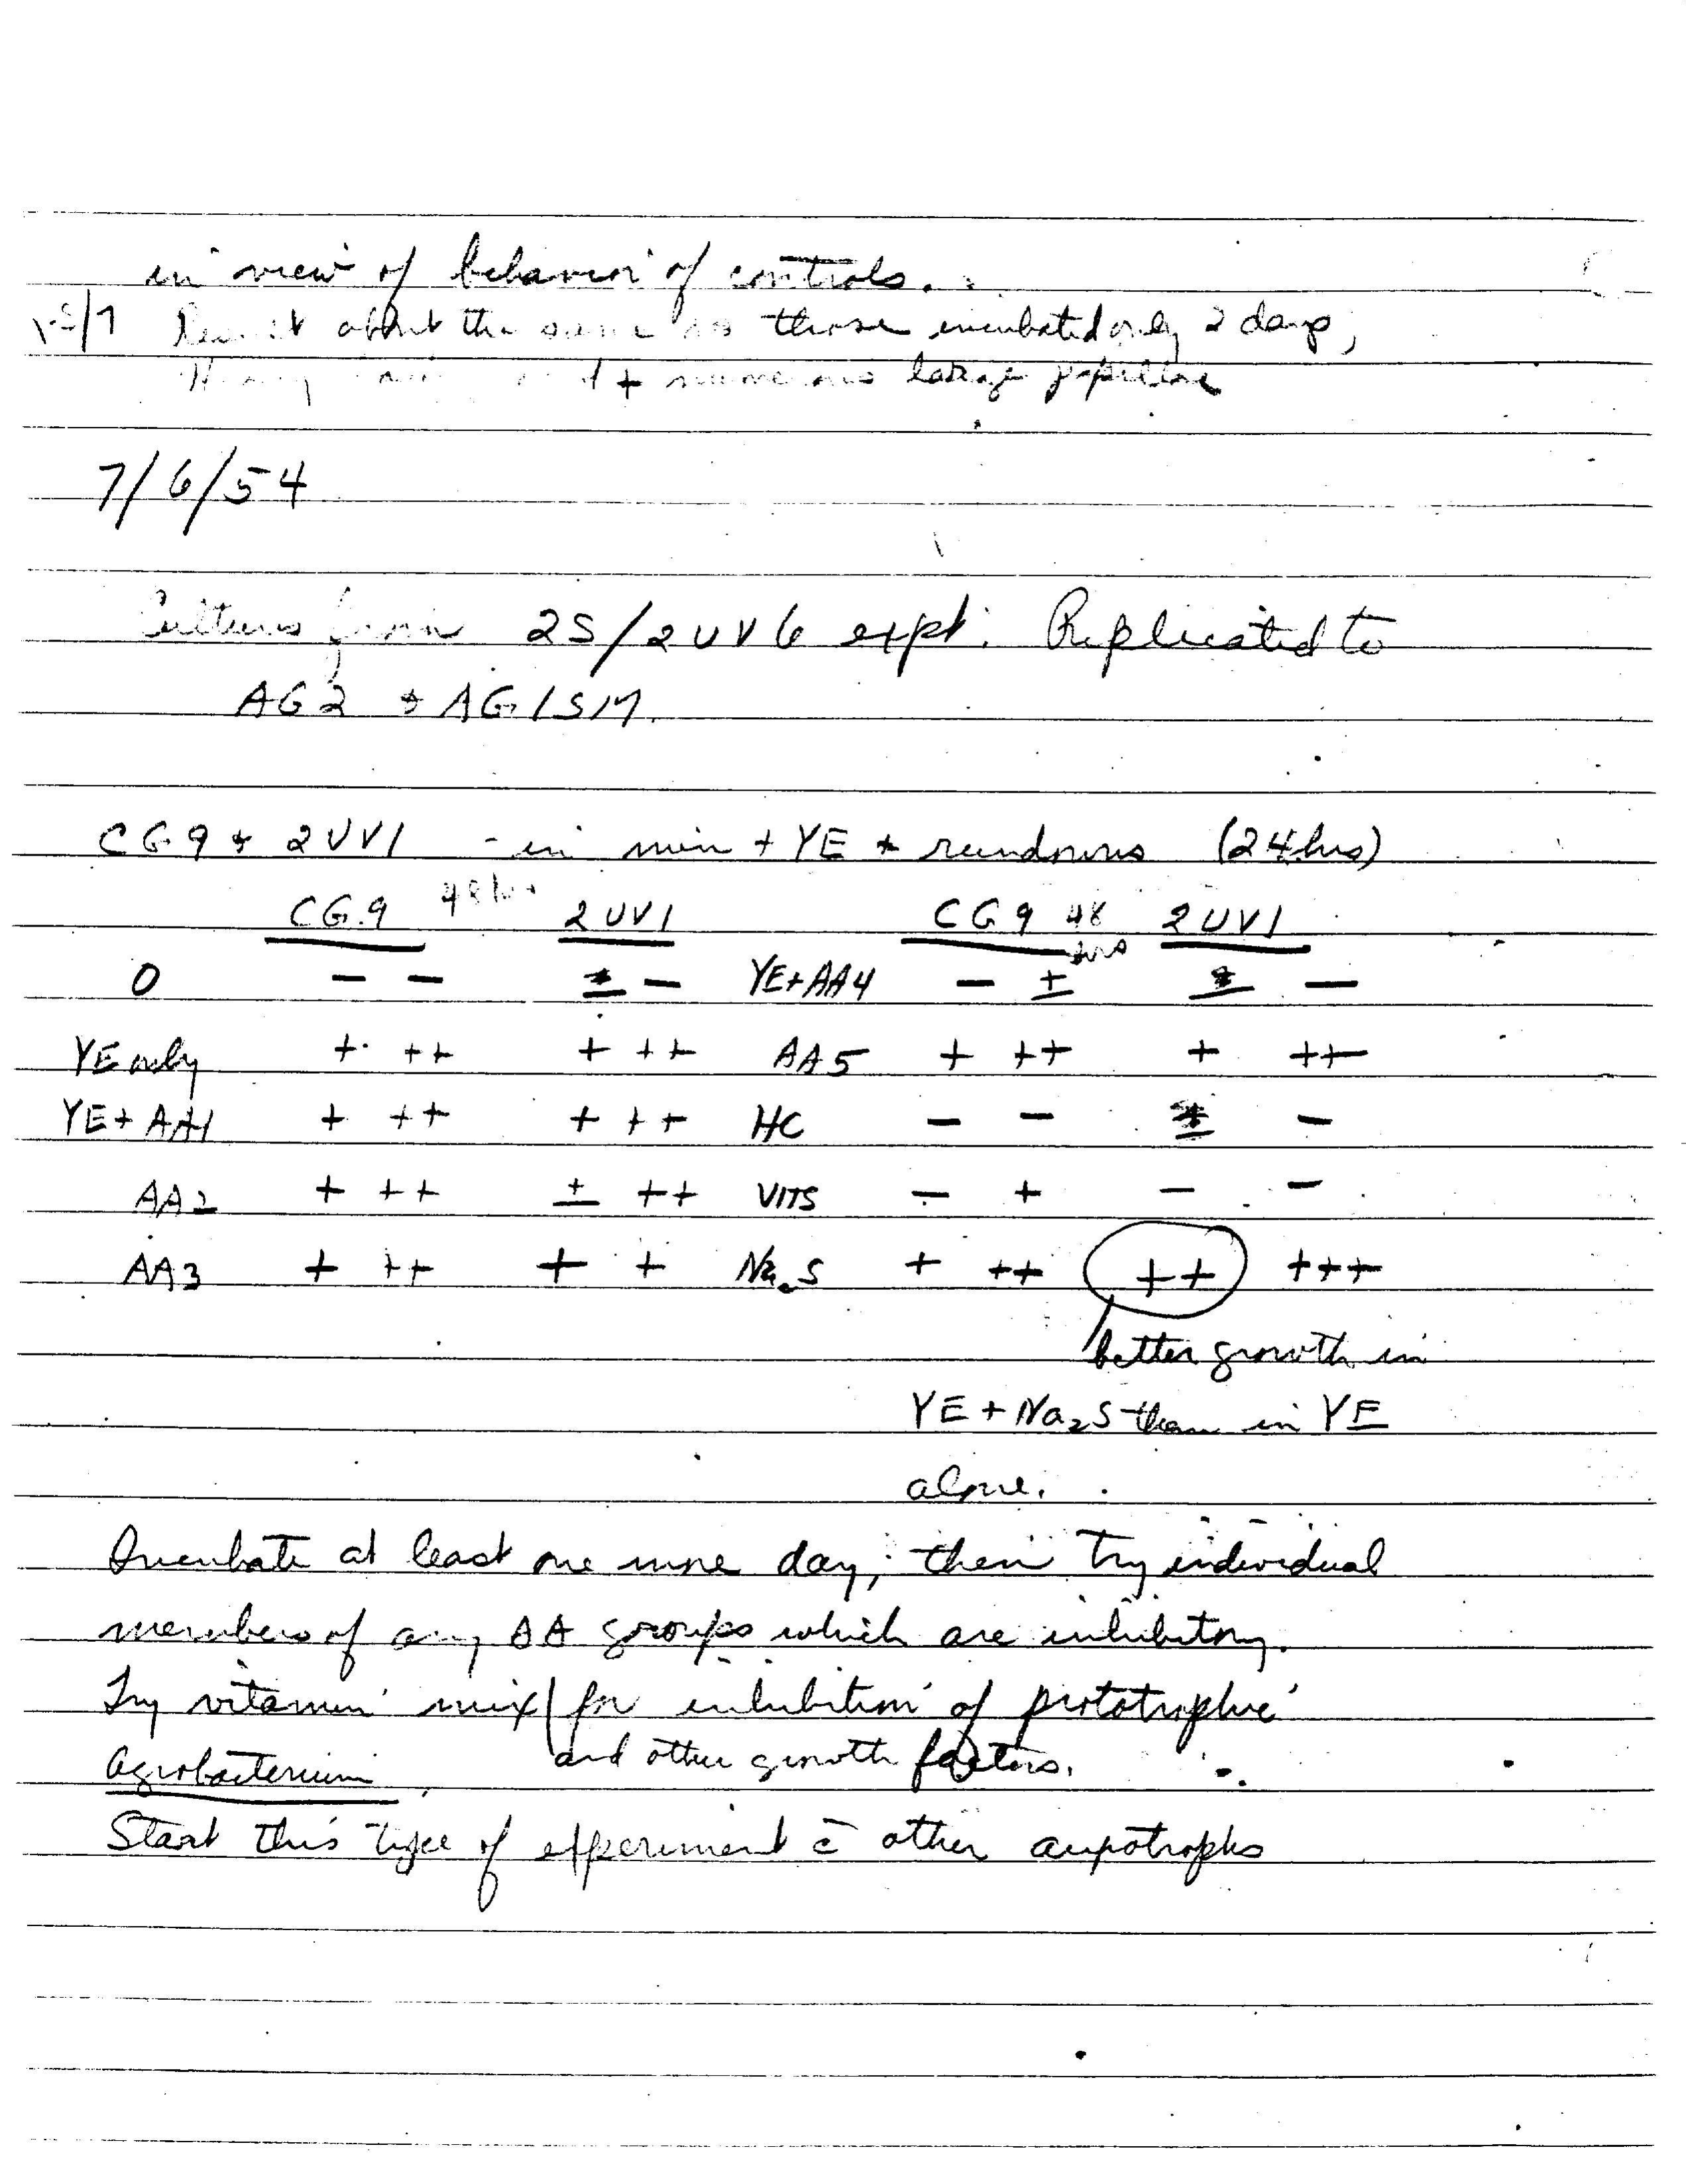 in view of behavior of controls.
Result about the same as those incubated only 2 days,
numerous large papillae
7/6/54
Cultures from 2S/2UV6 expt. Replicated to
AG2 & AG1SM.
CG9 & 2UV1 - in min + YE + (24 hrs)
CG9 48 hrs 2UV1 CG9 48 hrs 2UV1
0 - - ± - YE+AA4 - ± ± -
YE only + ++ + ++ AA5 + ++ + ++
YE+AA1 + ++ + ++ HC - - ± -
AA2 + ++ ± ++ VITS - + - -
AA3 + ++ + + Na2S + ++ ++ +++
better growth in
YE + Na2S than in YE
alone.
Incubate at least one more day, then try individual
members of any AA groups which are inhibitory.
Try vitamin mix for inhibition of prototrophic
Agrobacterium, and other growth factors.
Start this type of experiment c̄ other auxotrophs